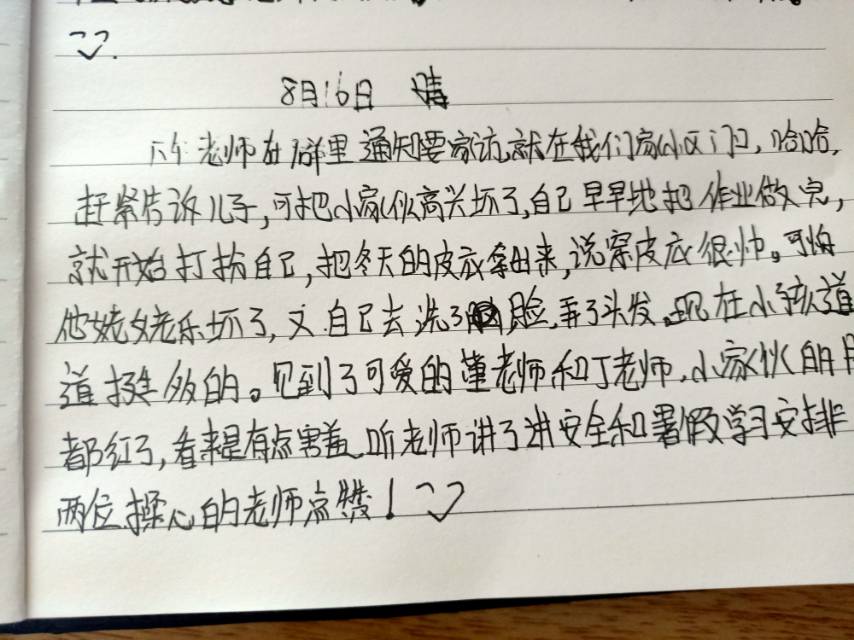 8月16日 晴
下午老师在群里通知要家访,就在我们家小区门口,哈哈,
赶紧告诉儿子,可把小家伙高兴坏了,自己早早地把作业做完,
就开始打扮自己,把冬天的皮衣拿出来,说穿皮衣很帅。可把
他姥姥乐坏了,又自己去洗了脸,弄了头发,现在小孩道
道挺多的。见到了可爱的董老师和丁老师,小家伙的
都红了,看来是有点害羞,听老师讲了讲安全和暑假学习安排
两位操心的老师点赞!